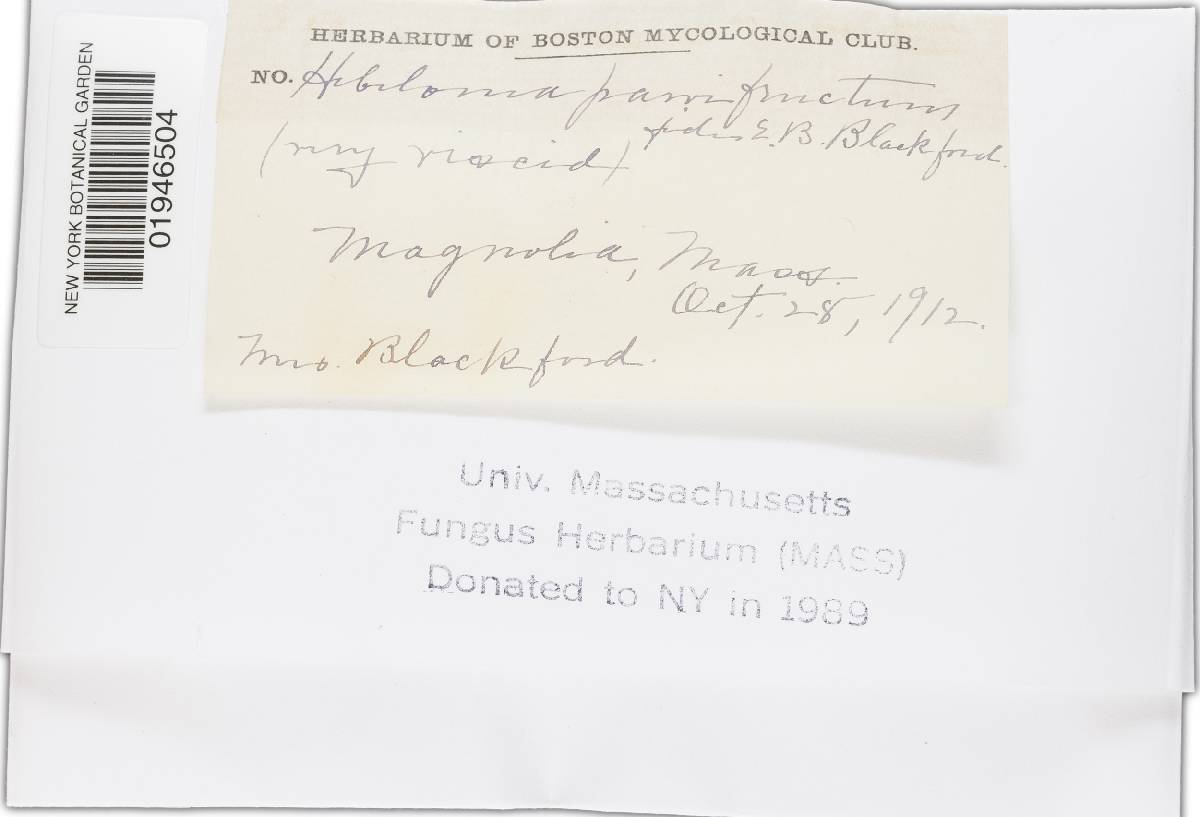 HERBARIUM OF BOSTON MYCOLOGICAL CLUB.
NO. Hebeloma parvifructum
fides E. B. Blackford.
(very viscid)
Magnolia, Mass.
Oct. 28, 1912.
Mrs. Blackford.
NEW YORK BOTANICAL GARDEN
01946504
Univ. Massachusetts
Fungus Herbarium (MASS)
Donated to NY in 1989